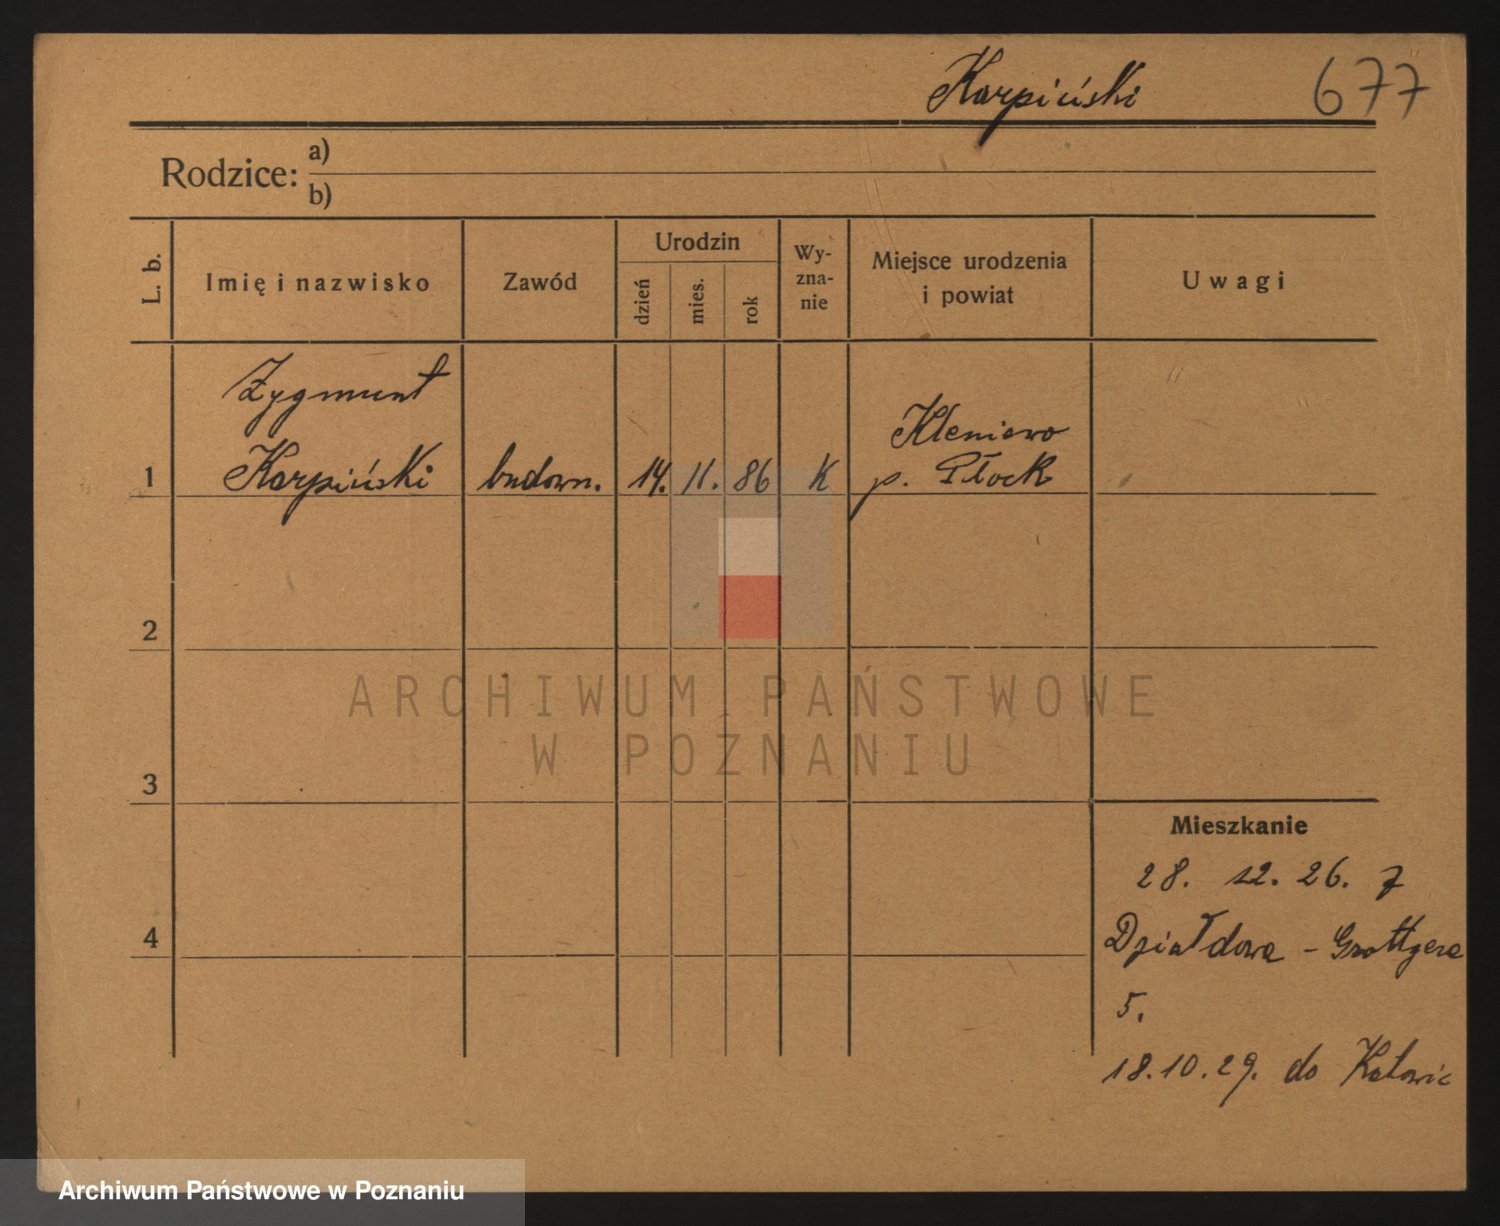 Karpiński 677
Rodzice: a)
b)
L. b.
Imię i nazwisko
Zawód
Urodzin
dzień
mies.
rok
Wy-
zna-
nie
Miejsce urodzenia
i powiat
Uwagi
1
Zygmunt
Karpiński
budown.
14. 11. 86
K
Kleniewo
p. Płock
2
3
4
Mieszkanie
28. 12. 26. z
Działdowa - Grottgera
5.
18.10.29. do Katowic
ARCHIWUM PAŃSTWOWE
W POZNANIU
Archiwum Państwowe w Poznaniu